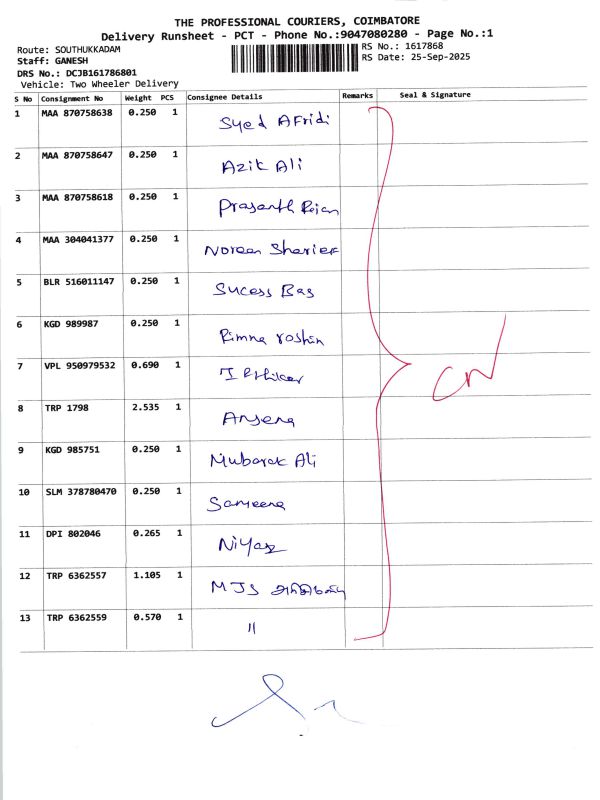 THE PROFESSIONAL COURIERS, COIMBATORE
Delivery Runsheet - PCT - Phone No.:9047080280 - Page No.:1
Route: SOUTHUKKADAM RS No.: 1617868
Staff: GANESH RS Date: 25-Sep-2025
DRS No.: DCJB161786801
Vehicle: Two Wheeler Delivery
S No Consignment No Weight PCS Consignee Details Remarks Seal & Signature
1 MAA 870758638 0.250 1 Syed Afridi
2 MAA 870758647 0.250 1 Azik Ali
3 MAA 870758618 0.250 1 Prasanth
4 MAA 304041377 0.250 1 Noreen Sharief
5 BLR 516011147 0.250 1 Sucess Bag
6 KGD 989987 0.250 1 Rimna roshin
7 VPL 950979532 0.690 1
8 TRP 1798 2.535 1
9 KGD 985751 0.250 1 Mubarak Ali
10 SLM 378780470 0.250 1 Sameena
11 DPI 802046 0.265 1 Niyaz
12 TRP 6362557 1.105 1 MJS
13 TRP 6362559 0.570 1 "